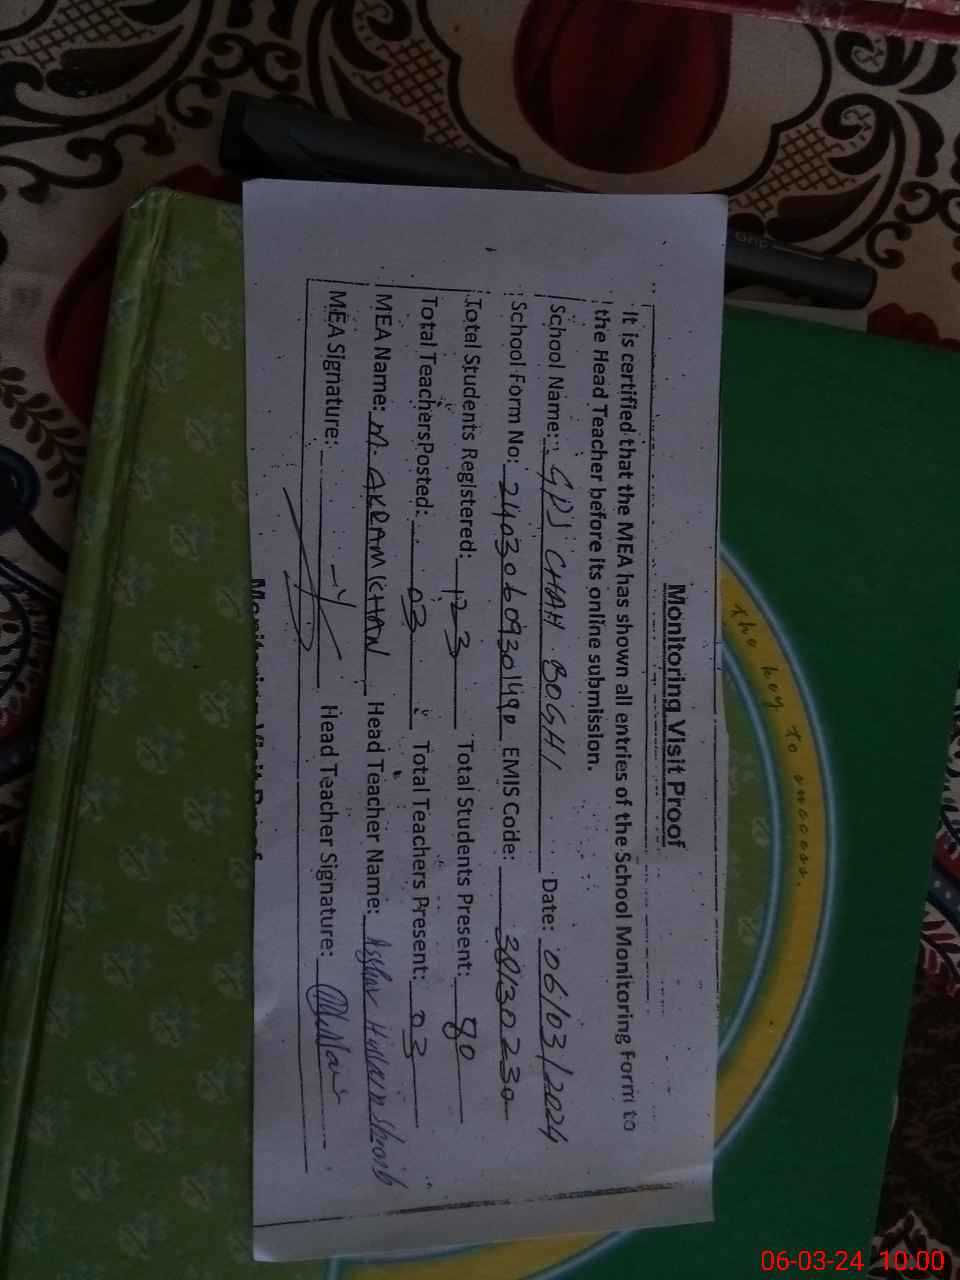 Monitoring Visit Proof
It is certified that the MEA has shown all entries of the School Monitoring Form to
the Head Teacher before its online submission.
School Name: GPS CHAH BOGHI Date: 06/03/2024
School Form No: 24030609301490 EMIS Code: 38130230
Total Students Registered: 123 Total Students Present: 80
Total Teachers Posted: 03 Total Teachers Present: 03
MEA Name: M. AKRAM KHAN Head Teacher Name: Asghar Hussain
MEA Signature: Head Teacher Signature:
Monitoring Visit Proof
the key to success.
06-03-24 10:00